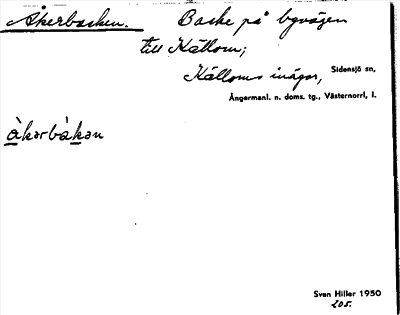 Åkerbacken. Backe på byvägen
till Källom;
Källoms inägor, Sidensjö sn,
Ångermanl. n. doms. tg., Västernorrl, l.
åkərbàkən
Sven Hiller 1950
205.